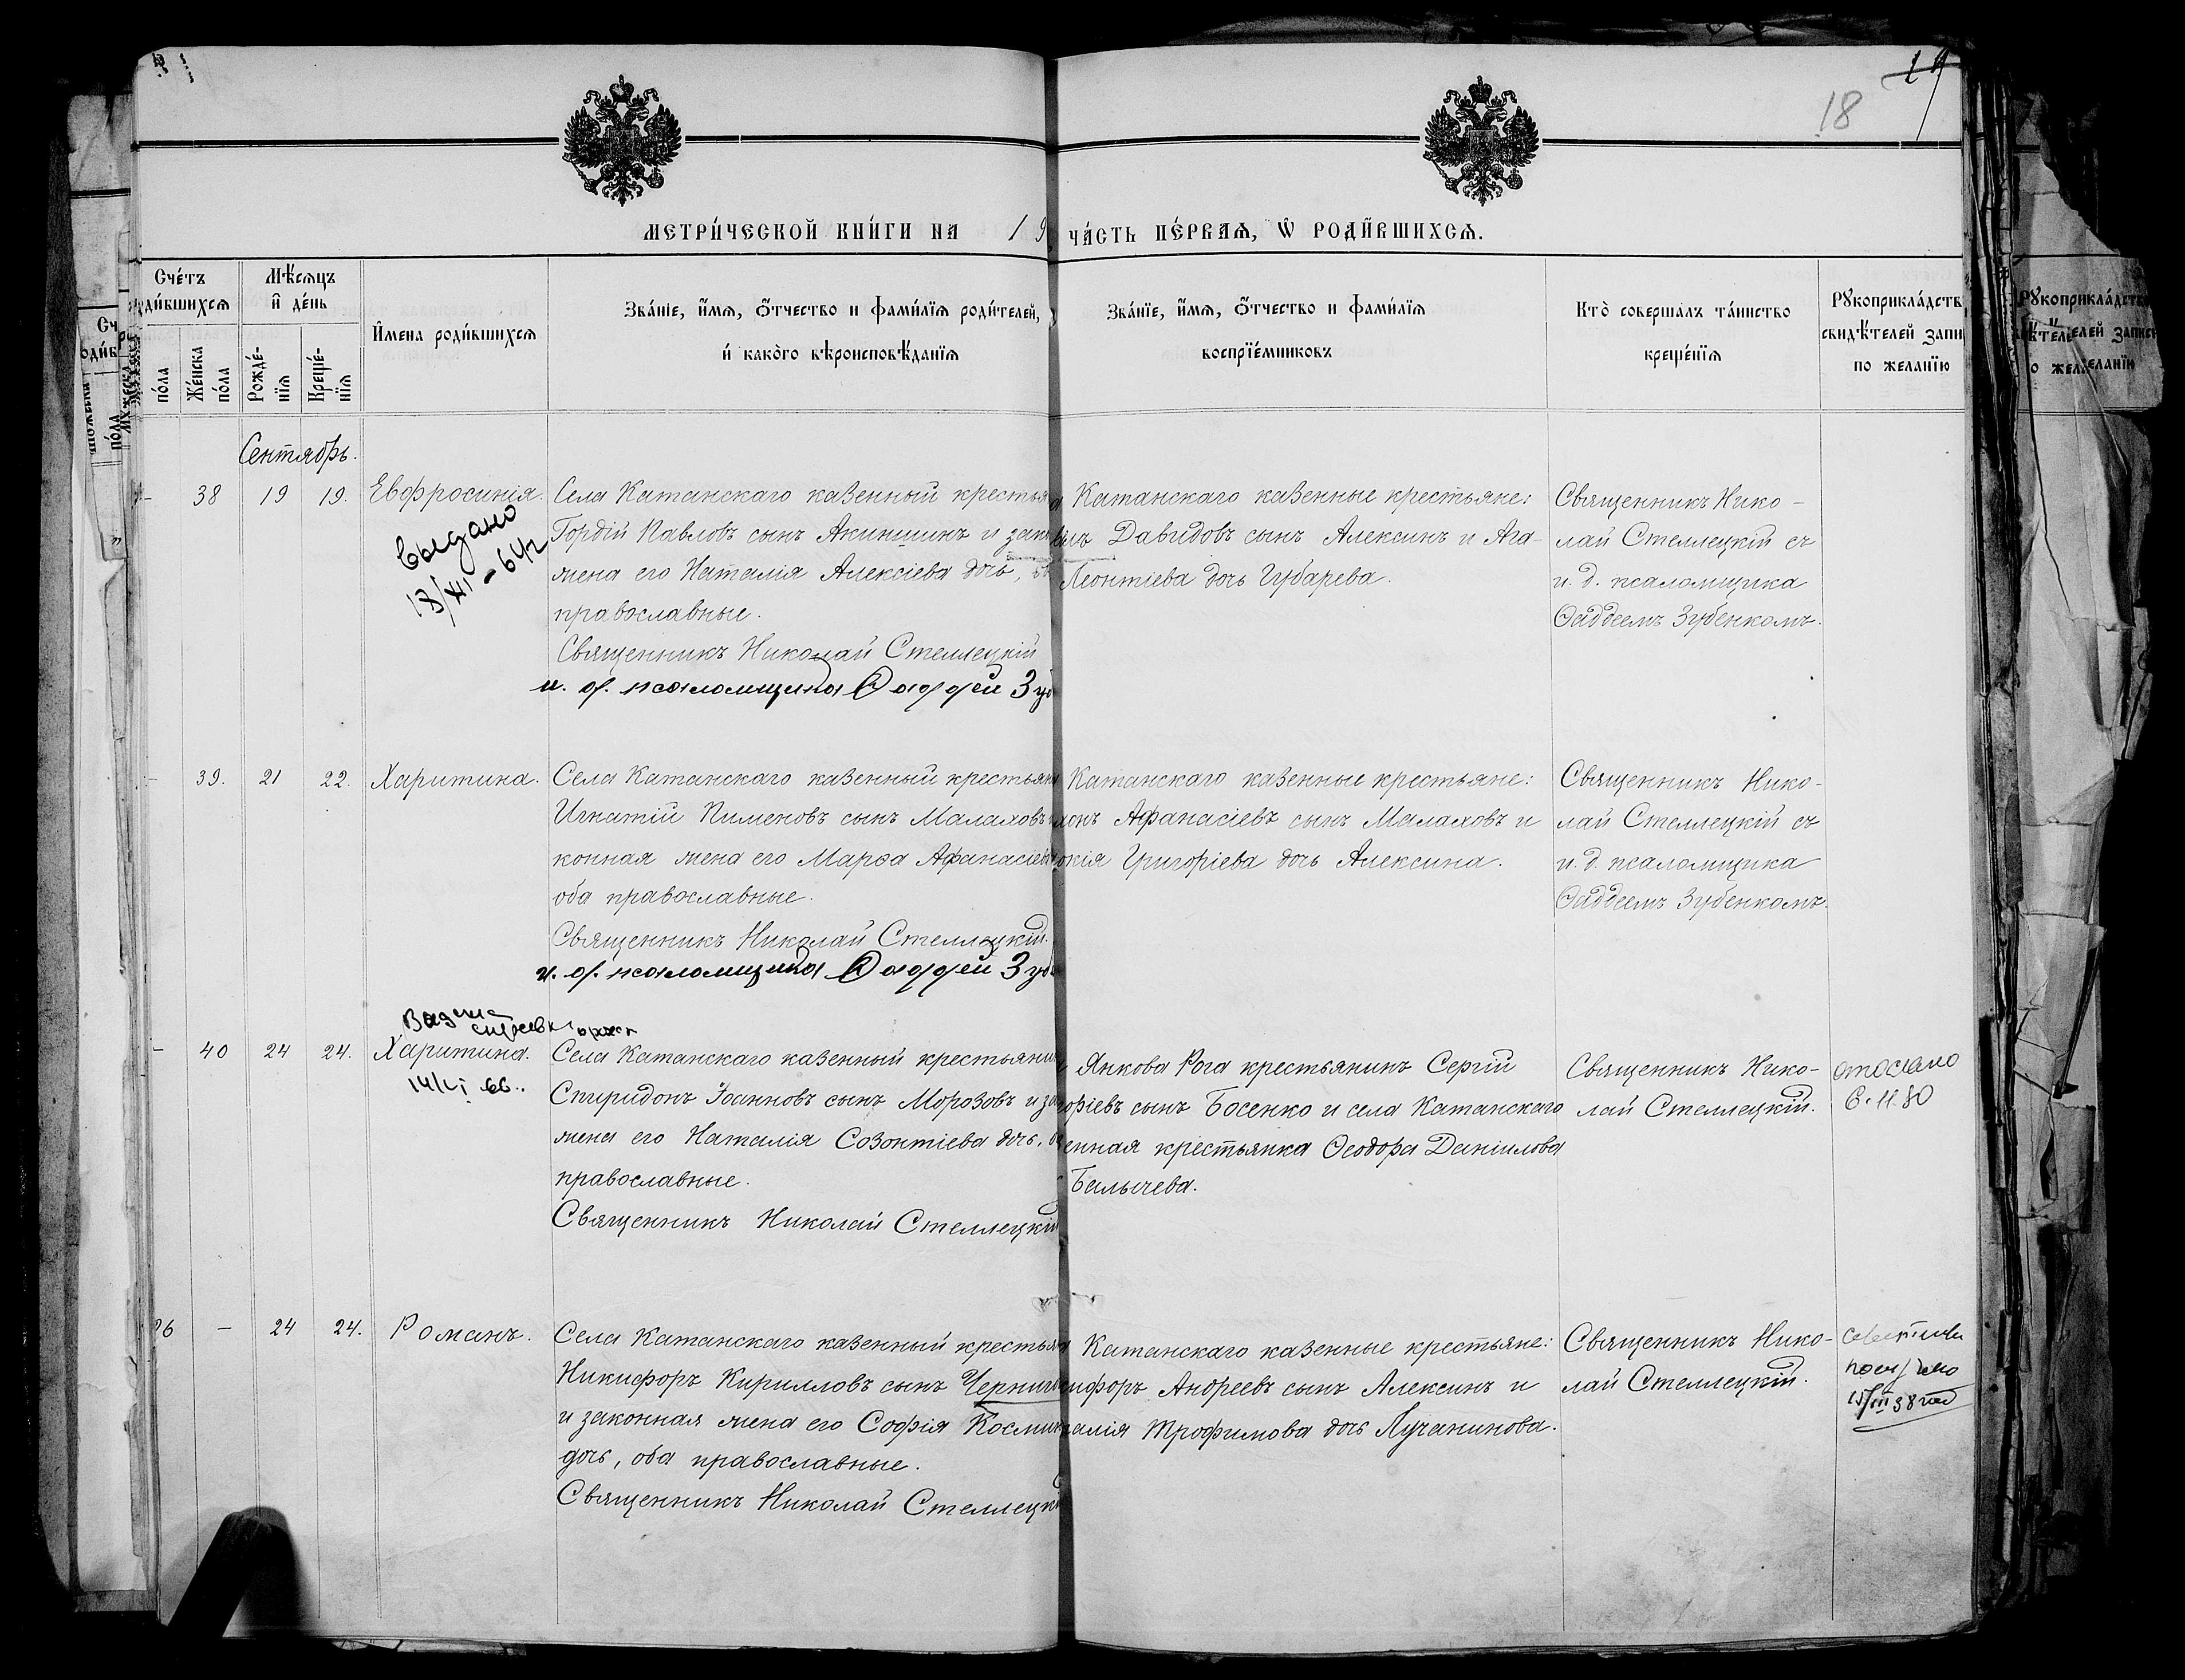 18
МЕТРИ́ЧЕСКОЙ КНИ́ГИ НА 19
ЧА́СТЬ ПЕ́РВАѦ, Ѡ РОДИ́ВШИХСѦ.
Счетъ
родившихсѧ
пола
Женска
пола
Мѣсѧцъ
и день
Рожде-
нїѧ
Креще-
нїѧ
Имена родившихсѧ
Званїе, имѧ, отчество и фамилїѧ родителей,
и какого вѣроисповѣданїѧ
Званїе, имѧ, отчество и фамилїѧ
воспрїемниковъ
Кто совершалъ таинство
крещенїѧ
Рꙋкоприкладств
свидѣтелей запи
по желанїю
Сентябрь.
– 38 19 19. Евфросинія.
Выдано
18/XI - 64г
Села Катанскаго казенный крестья
Гордій Павловъ сынъ Акиншинъ и зак
жена его Наталія Алексіева дочь,
православные.
Священникъ Николай Стеллецкій
и. д. псаломщика Ѳаддей Зуб
Катанскаго казенные крестьяне:
Давидовъ сынъ Алексинъ и Ага-
Леонтіева дочь Губарева.
Священникъ Нико-
лай Стеллецкій съ
и. д. псаломщика
Ѳаддеемъ Зубенкомъ.
– 39. 21 22. Харитина.
Села Катанскаго казенный крестьян
Игнатій Пименовъ сынъ Малаховъ
конная жена его Марѳа Афанасіев
оба православные.
Священникъ Николай Стеллецкій.
и. д. псаломщика Ѳаддей Зуб
Катанскаго казенные крестьяне:
Афанасіевъ сынъ Малаховъ и
окія Григоріева дочь Алексина.
Священникъ Нико-
лай Стеллецкій съ
и. д. псаломщика
Ѳаддеемъ Зубенкомъ.
– 40 24 24. Харитина.
Села Катанскаго казенный крестьяни
Спиридонъ Іоанновъ сынъ Морозовъ и за
жена его Наталія Созонтіева дочь,
православные.
Священникъ Николай Стеллецкій
Янкова Рога крестьянинъ Сергій
горіевъ сынъ Босенко и села Катанскаго
енная крестьянка Ѳеодора Даніилова
Балычева.
Священникъ Нико-
лай Стеллецкій.
отослано
6.11.80
26 – 24 24. Романъ.
Села Катанскаго казенный крестья
Никифоръ Кирилловъ сынъ Черниг
и законная жена его Софія Косми
дочь, оба православные.
Священникъ Николай Стеллецкі
Катанскаго казенные крестьяне:
ифоръ Андреевъ сынъ Алексинъ и
алія Трофимова дочь Лучанинова.
Священникъ Нико-
лай Стеллецкій.